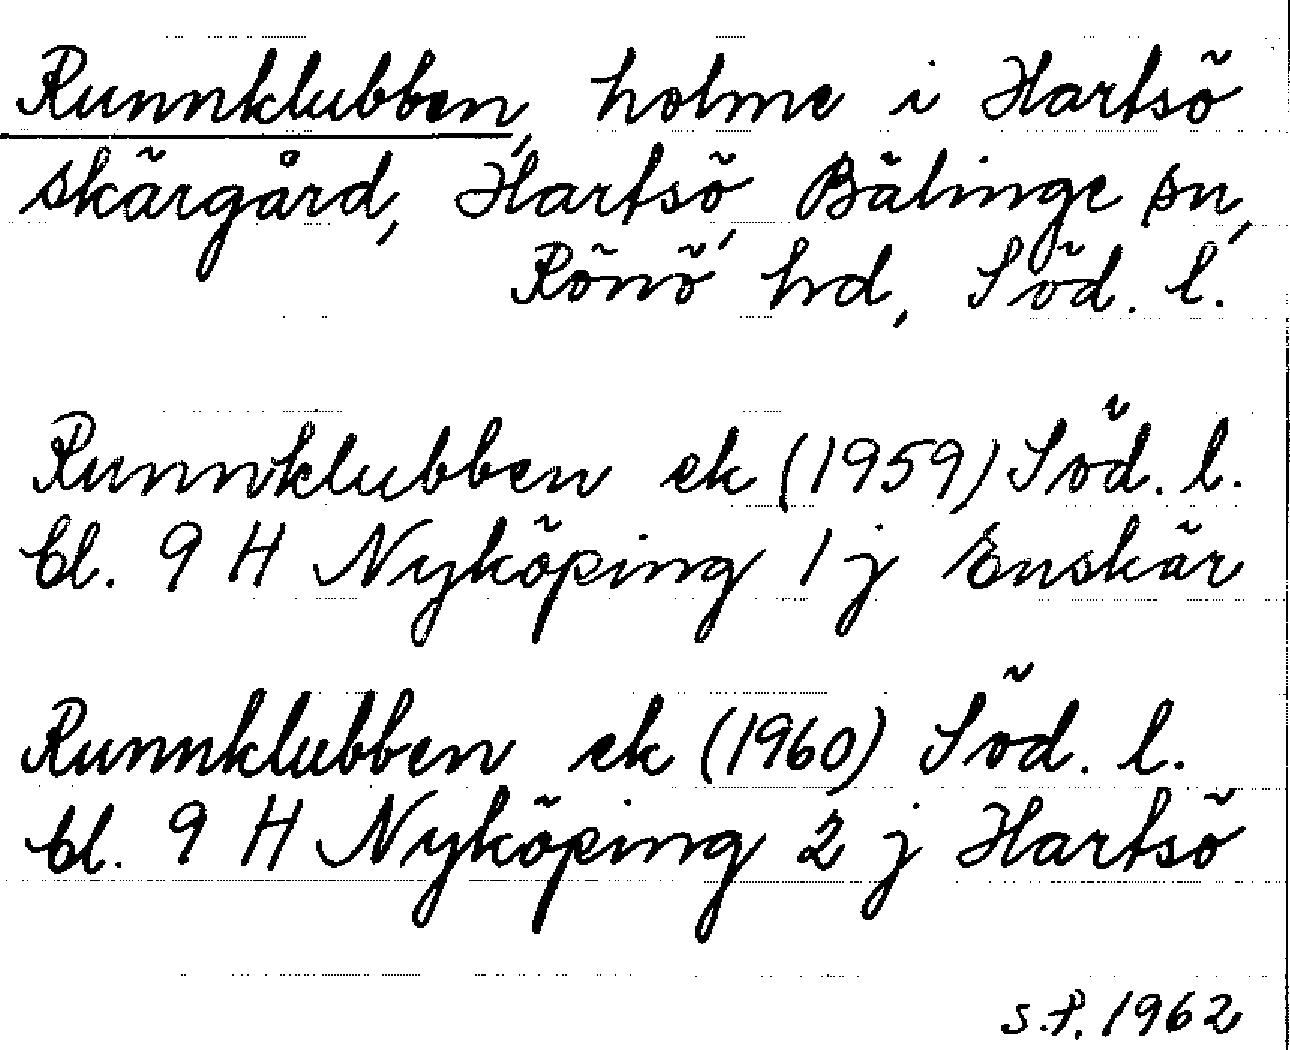 Runnklubben, holme i Hartsö
skärgård, Hartsö, Bälinge sn,
Rönö hd, Söd. l.
Runnklubben ek (1959) Söd. l.
bl. 9 H Nyköping 1 j Enskär
Runnklubben ek (1960) Söd. l.
bl. 9 H Nyköping 2 j Hartsö
S.P. 1962